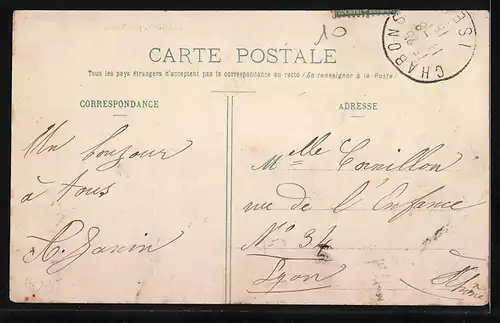 10
CHABONS
CARTE POSTALE
Tous les pays étrangers n'acceptent pas la correspondance au recto (Se renseigner à la Poste)
CORRESPONDANCE
ADRESSE
Un bonjour
à tous
Melle Cornillon
rue de l'Enfance
N° 34
Lyon
Rhône